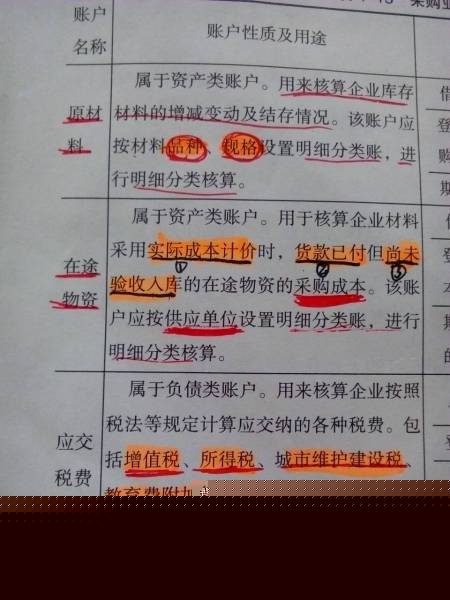 采购业
账户
名称
账户性质及用途
原材
料
属于资产类账户。用来核算企业库存
材料的增减变动及结存情况。该账户应
按材料品种、规格设置明细分类账，进
行明细分类核算。
借
登
购
期
在途
物资
属于资产类账户。用于核算企业材料
采用实际成本计价时，货款已付但尚未
① ② ③
验收入库的在途物资的采购成本。该账
户应按供应单位设置明细分类账，进行
明细分类核算。
登
本
期
的
应交
税费
属于负债类账户。用来核算企业按照
税法等规定计算应交纳的各种税费。包
括增值税、所得税、城市维护建设税、
教育费附加